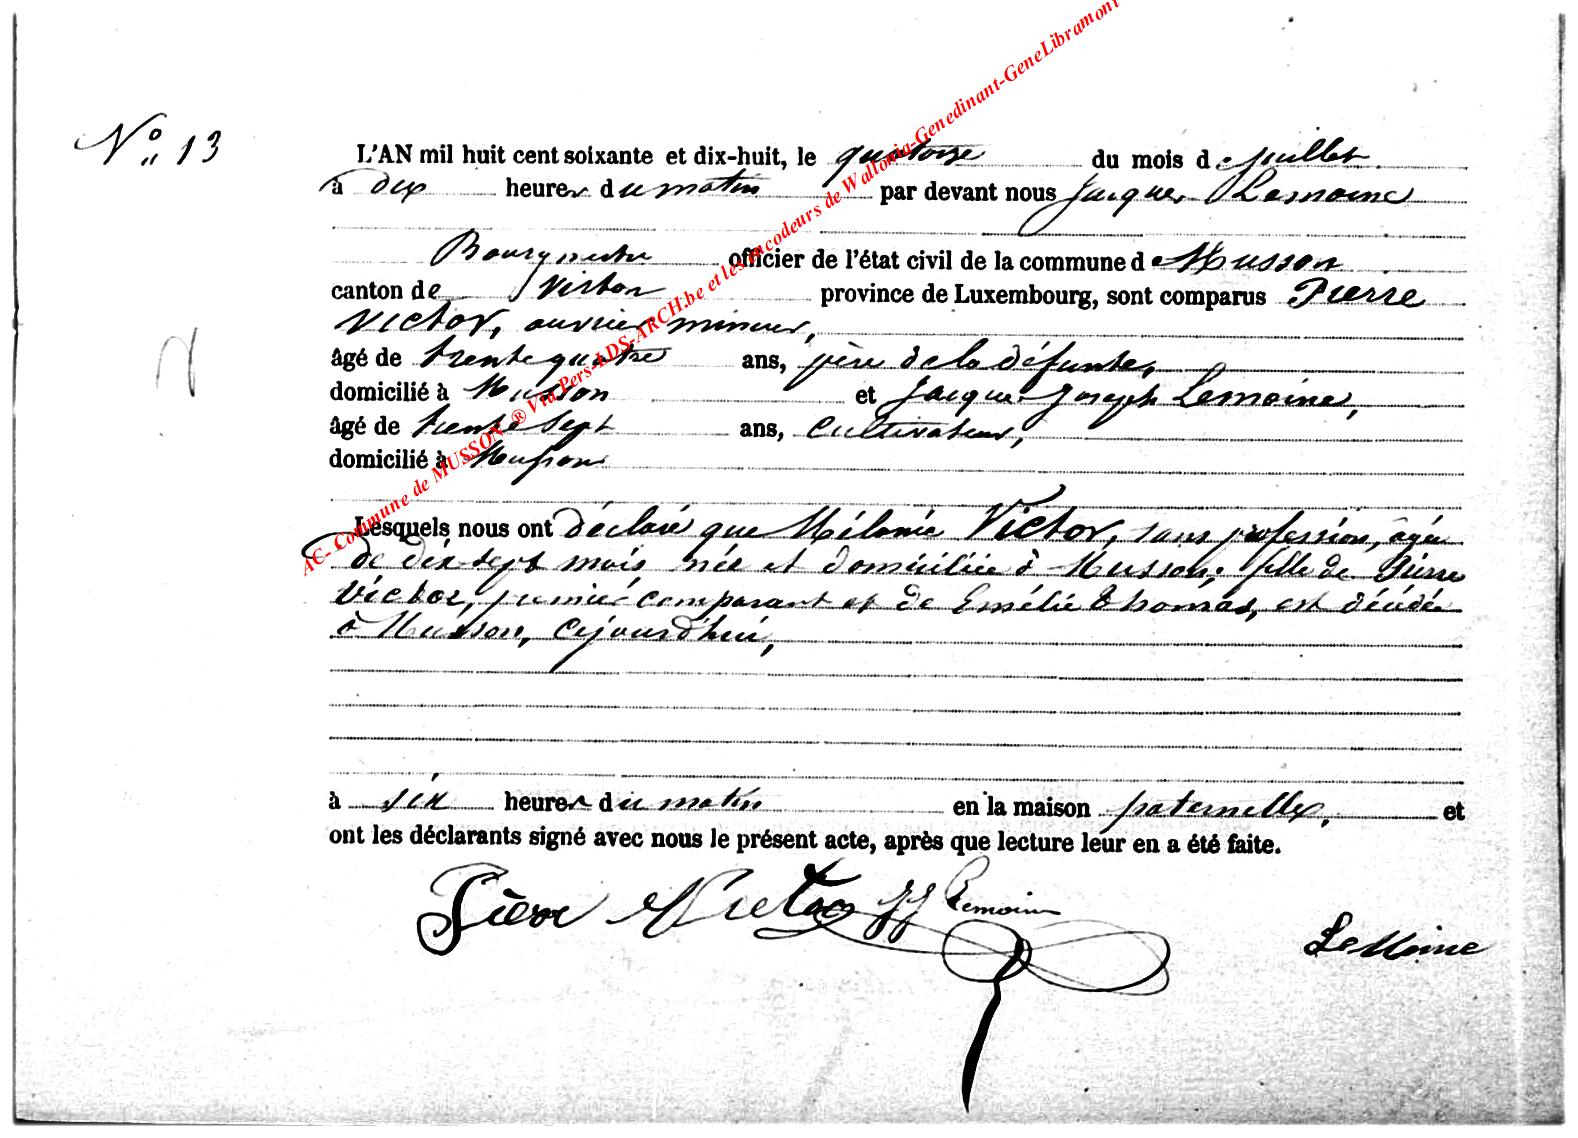 N° 13
L'AN mil huit cent soixante et dix-huit, le quatorze du mois de juillet
à dix heures du matin par devant nous Jacques Lemoine
Bourgmestre officier de l'état civil de la commune de Musson
canton de Virton province de Luxembourg, sont comparus Pierre
Victor, ouvrier mineur,
âgé de trente quatre ans, père de la défunte,
domicilié à Musson et Jacques Joseph Lemoine,
âgé de trente sept ans, cultivateur,
domicilié à Musson
Lesquels nous ont déclaré que Mélanie Victor, sans profession, âgée
de dix-sept mois née et domiciliée à Musson, fille de Pierre
Victor, premier comparant et de Emélie Thomas, est décédée
à Musson, cejourd'hui,
à six heures du matin en la maison paternelle, et
ont les déclarants signé avec nous le présent acte, après que lecture leur en a été faite.
Pierre Victor JJ Lemoine
LeMoine
AC- Commune de MUSSON ® Via Pers-LDS-ARCH.be et les encodeurs de Wallonia-Genedinant-GeneLibramont